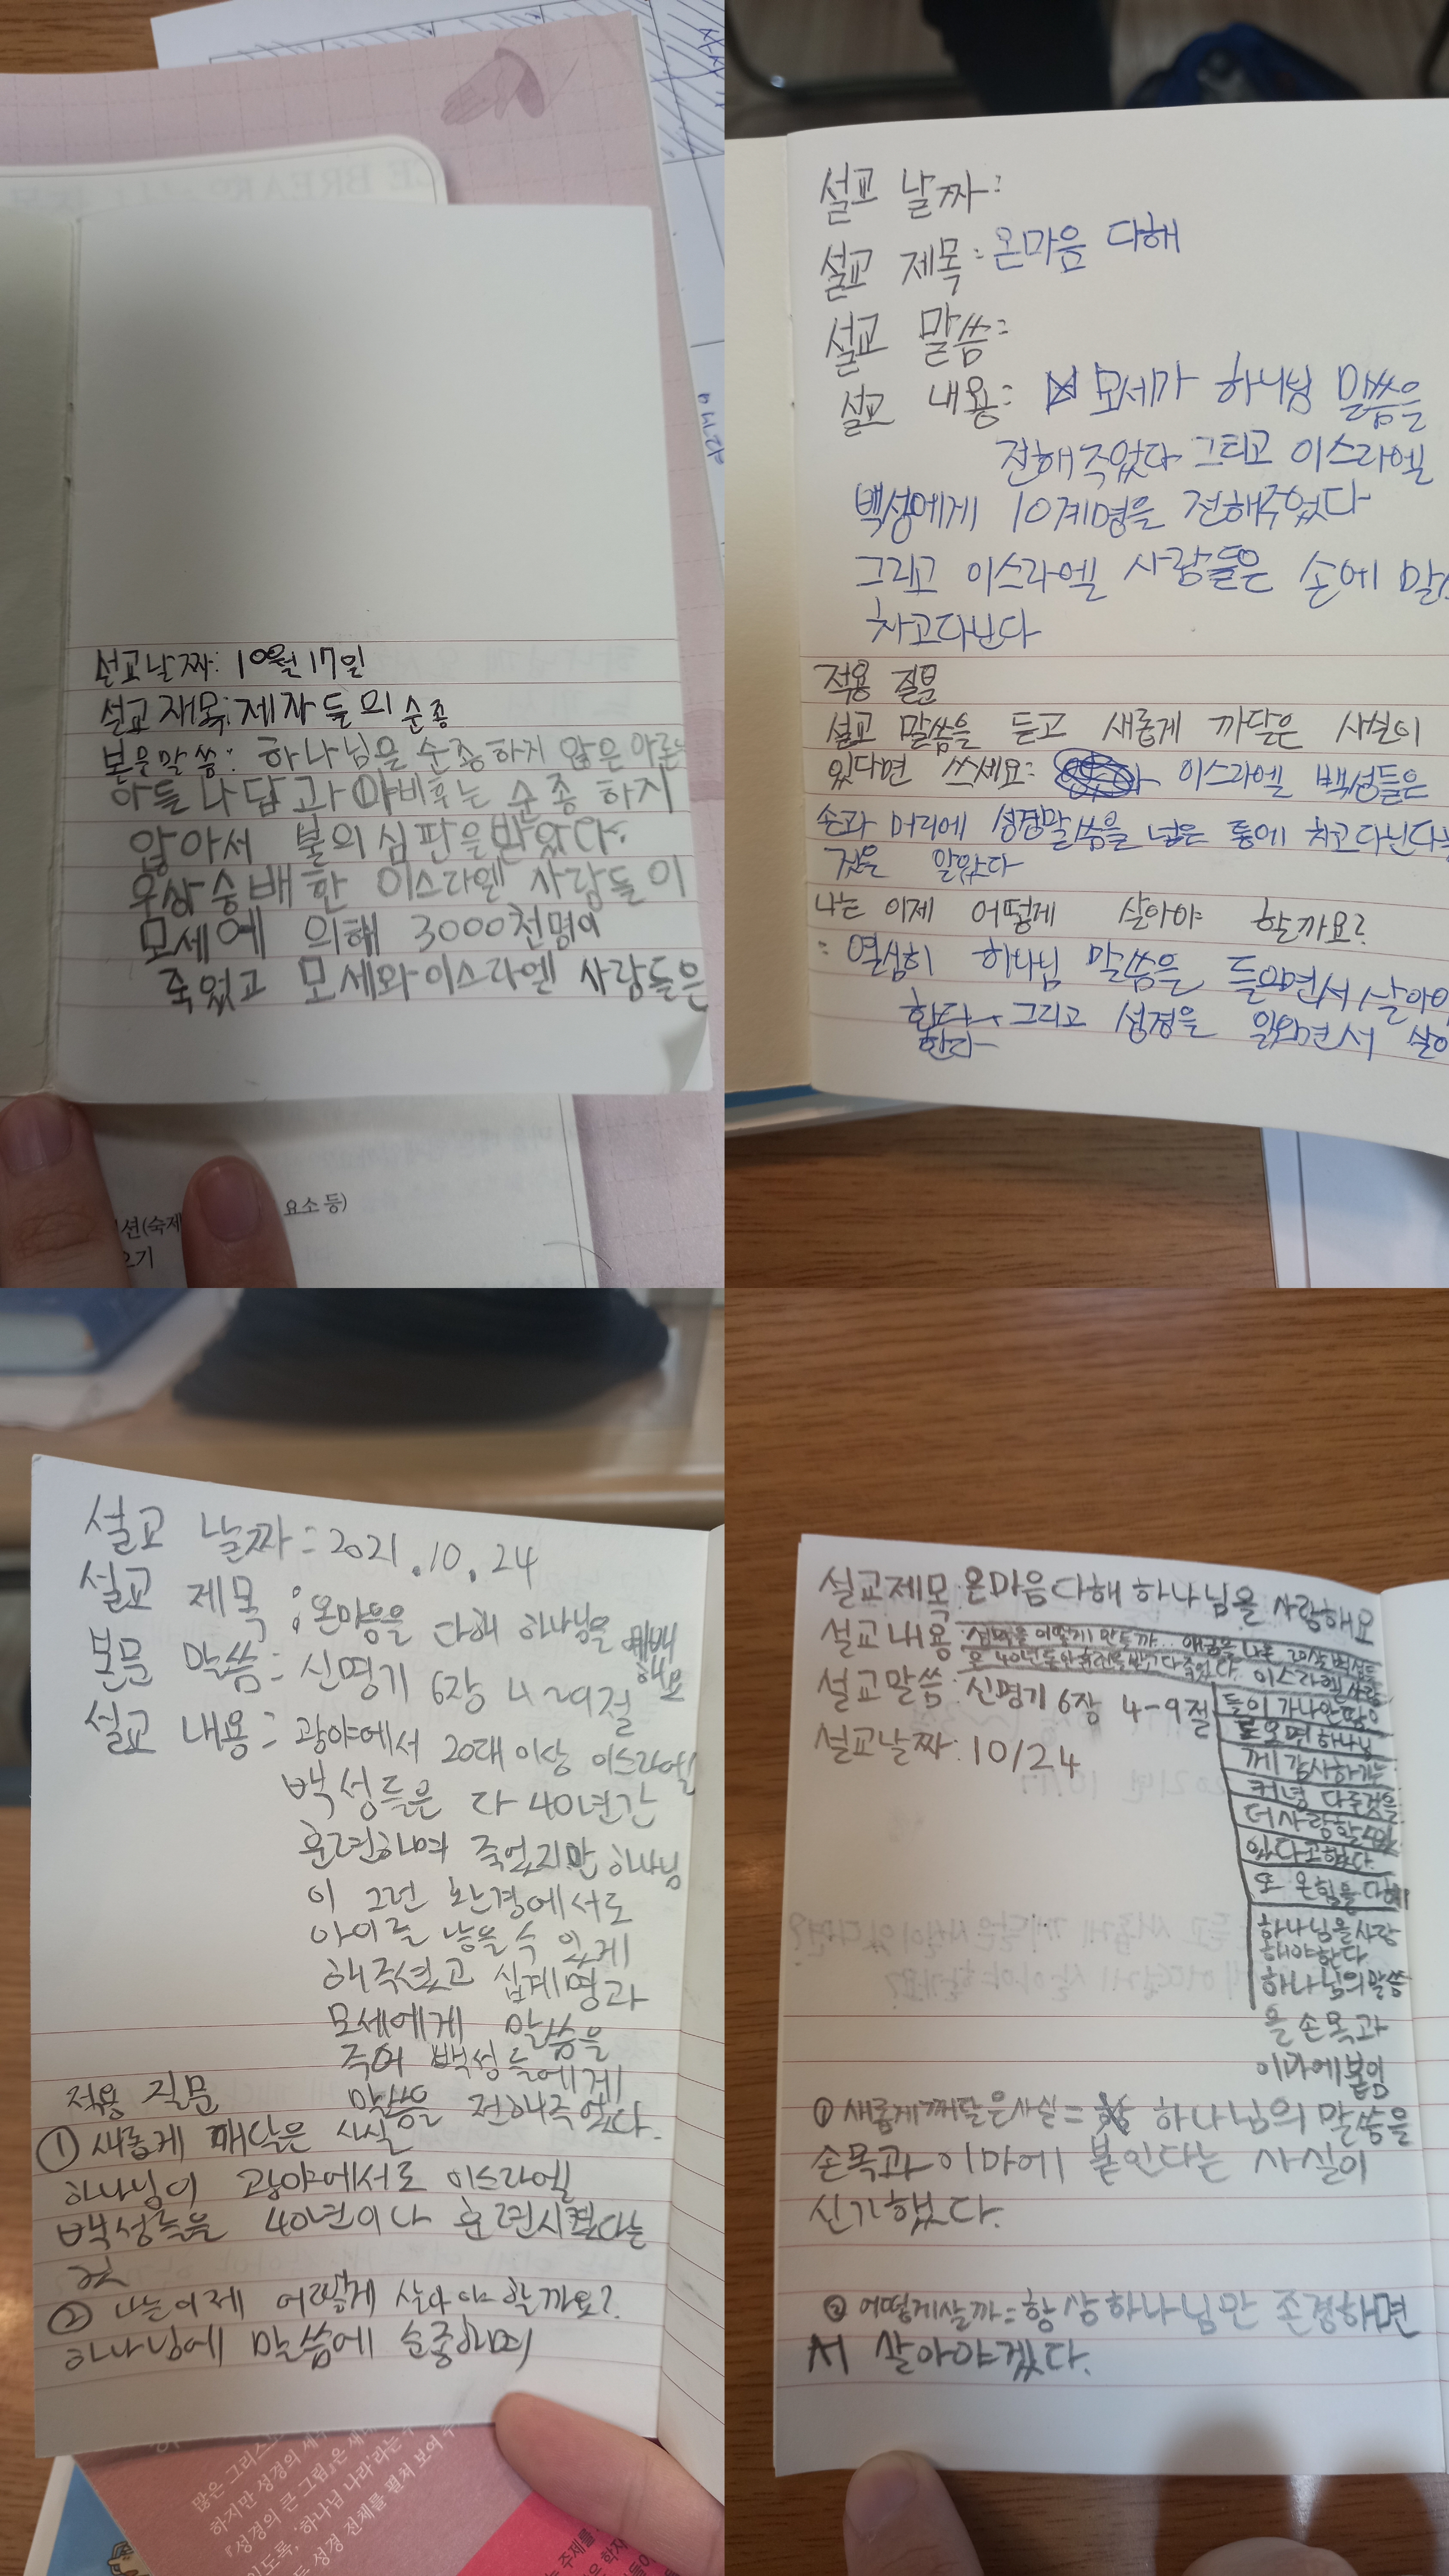 설교날짜: 10월 17일
설교재목: 제자들의 순종
본문말씀: 하나님을 순종하지 않은 아론
아들 나답과 아비후는 순종 하지
않아서 불의 심판을 받았다.
우상숭배한 이스라엘 사람들이
모세에 의해 3000천명이
죽었고 모세와 이스라엘 사람들은
션(숙제
요소 등)
오기
설교 날짜:
설교 제목: 온마음 다해
설교 말씀:
설교 내용: 모세가 하나님 말씀을
전해주었다 그리고 이스라엘
백성에게 10계명을 전해주었다
그리고 이스라엘 사람들은 손에
차고다닌다
적용 질문
설교 말씀을 듣고 새롭게 까달은 사실이
있다면 쓰세요: 이스라엘 백성들은
손과 머리에 성경말씀을 넓은 통에 차고다닌다는
것은 알았다
나는 이제 어떻게 살아야 할까요?
: 열심히 하나님 말씀을 들으면서 살아야
한다 그리고 성경을 읽으면서
한다
설교 날짜: 2021.10.24
설교 제목: 온마음을 다해 하나님을 예배
해요
본문 말씀: 신명기 6장 4-9절
설교 내용: 광야에서 20대 이상 이스라엘
백성들은 다 40년간
훈련하여 죽었지만 하나님
이 그런 환경에서도
아이를 낳을 수 있게
해주셨고 십계명과
모세에게 말씀을
주어 백성들에게
말씀을 전해주었다.
적용 질문
① 새롭게 깨닥은 사실
하나님이 광야에서도 이스라엘
백성들을 40년이나 훈련시켰다는
것
② 나는이제 어떻게 살아야 할까요?
하나님에 말씀에 순종하며
많은 그리스도
하지만 성경의
『성경의 큰 그림』은 새
'하나님 나라'라는
성경 전체를 펼쳐 보여
설교제목: 온마음다해 하나님을 사랑해요
설교내용: 성막을 어떻게 만들까... 애굽을 나온 20살 백성들
은 40년동안 훈련을 받고 다 죽었다. 이스라엘 사람
들이 가나안땅으
로오면 하나님
께 감사하기는
커녕 다른것을
더사랑할수
있다고했다.
또 온힘을 다해
하나님을사랑
해야한다
하나님의말씀
을 손목과
이마에붙임
설교말씀: 신명기 6장 4-9절
설교날짜: 10/24
① 새롭게깨달은사실= 하나님의 말씀을
손목과 이마에 붙인다는 사실이
신기했다.
② 어떻게살까=항상하나님만 존경하면
서 살아야겠다.